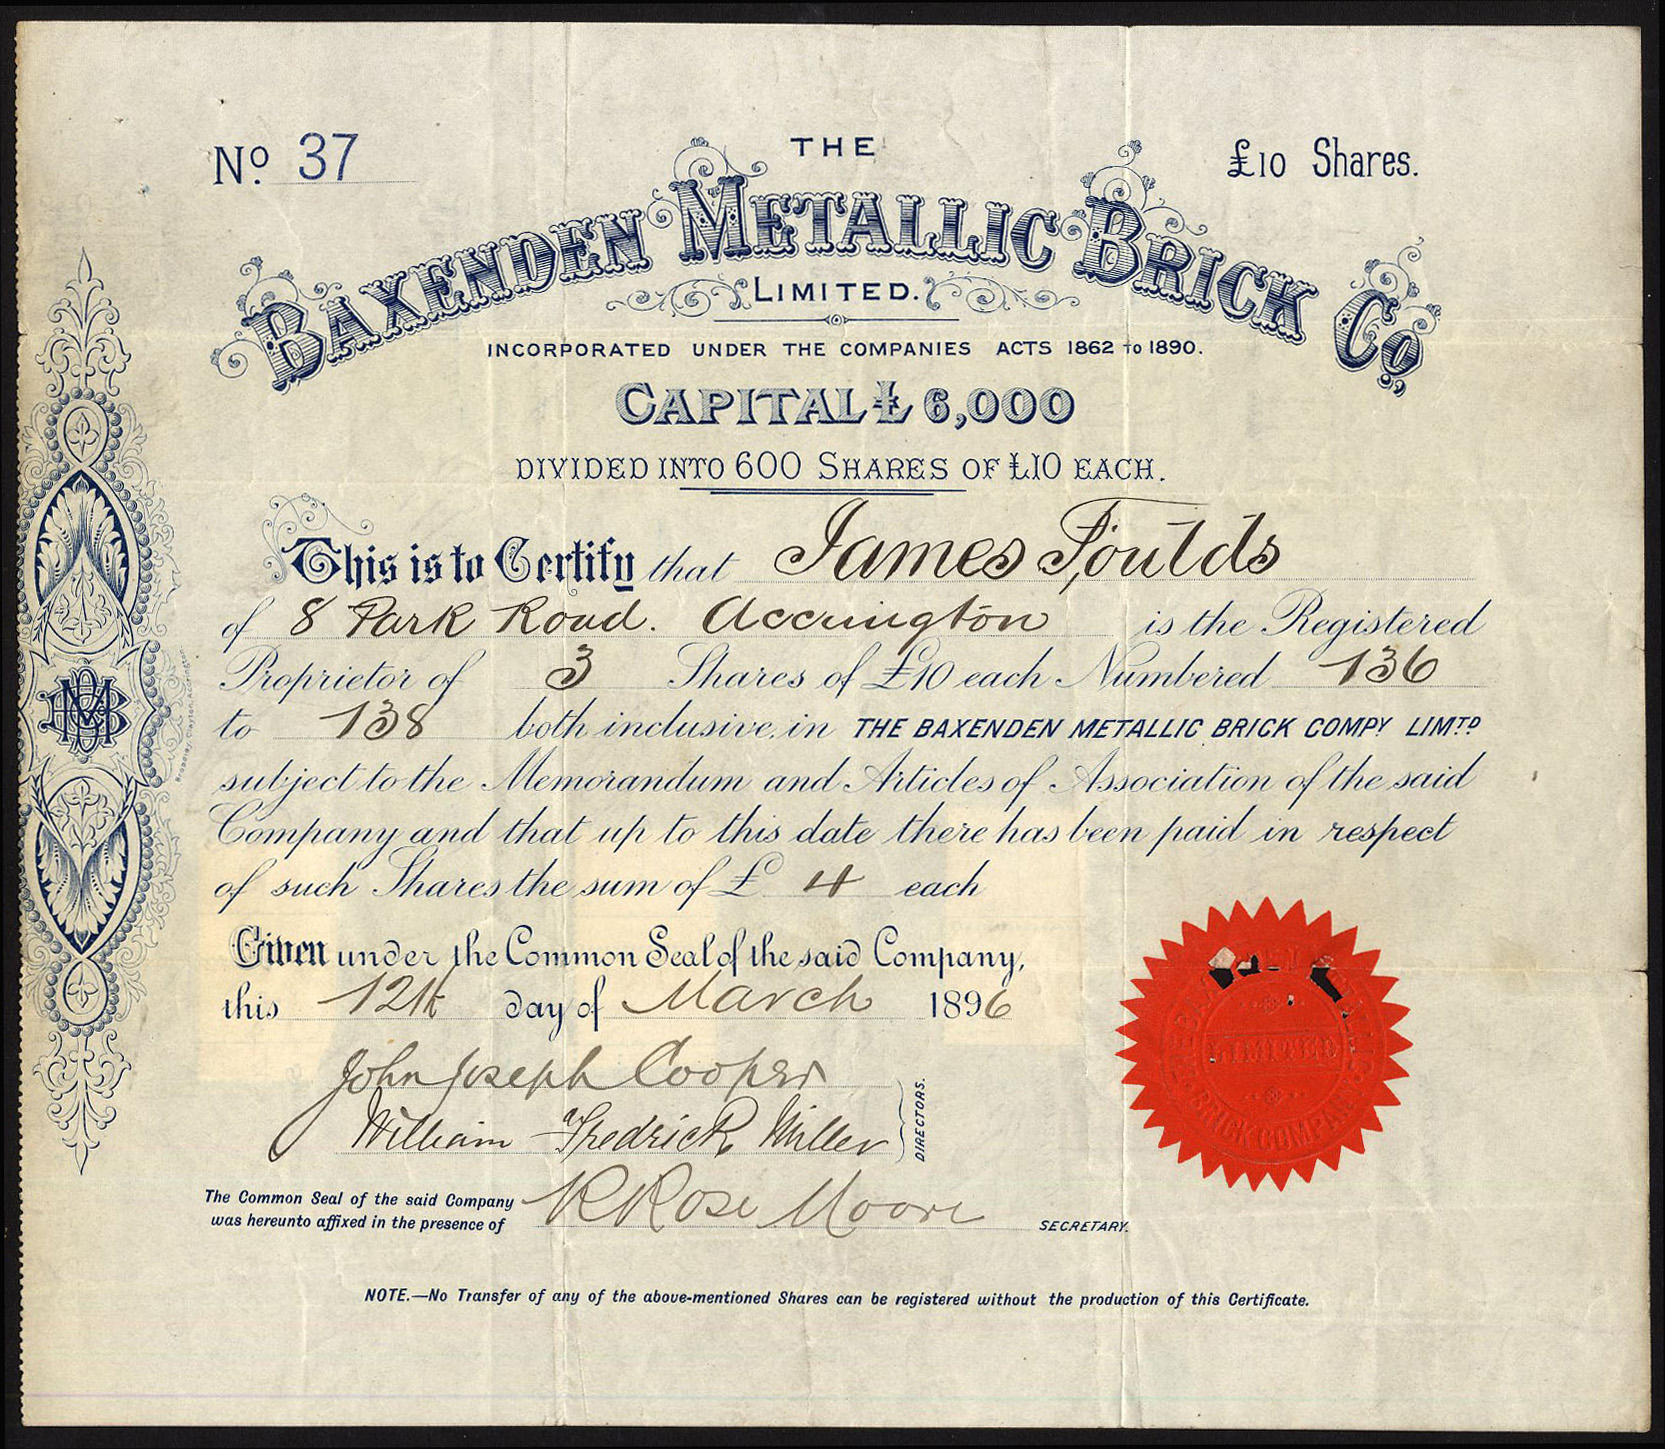 No. 37
£10 Shares.
THE
BAXENDEN METALLIC BRICK Co,
LIMITED.
INCORPORATED UNDER THE COMPANIES ACTS 1862 to 1890.
CAPITAL £6,000
DIVIDED INTO 600 SHARES OF £10 EACH.
This is to Certify that James Foulds
of 8 Park Road. Accrington is the Registered
Proprietor of 3 Shares of £10 each Numbered 136
to 138 both inclusive, in THE BAXENDEN METALLIC BRICK COMPY LIMTD
subject to the Memorandum and Articles of Association of the said
Company and that up to this date there has been paid in respect
of such Shares the sum of £ 4 each
Given under the Common Seal of the said Company,
this 12th day of March 1896
John Joseph Cooper
William Fredrick Miller
DIRECTORS.
The Common Seal of the said Company
was hereunto affixed in the presence of R Rose Moore SECRETARY.
LIMITED
BRICK COMPANY
NOTE.—No Transfer of any of the above-mentioned Shares can be registered without the production of this Certificate.